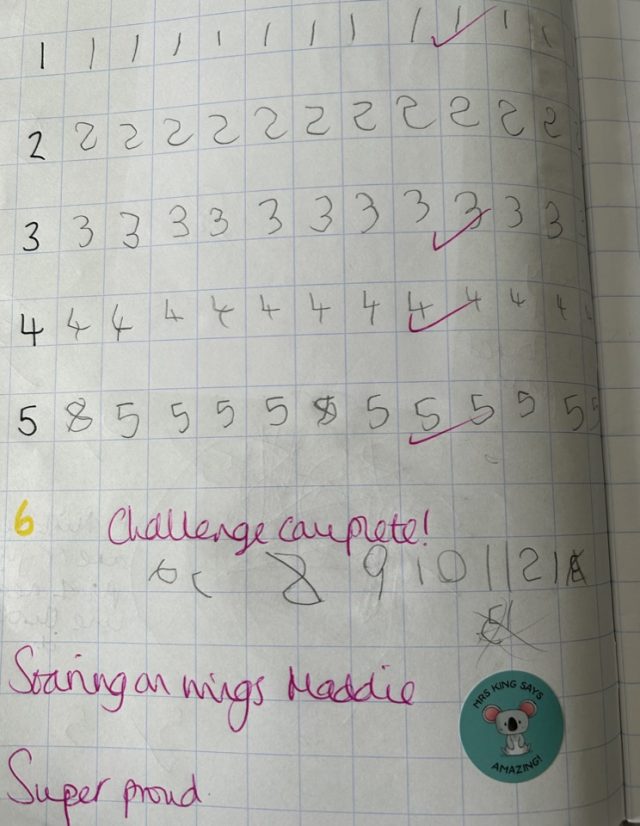 1 1 1 1 1 1 1 1 1 1 1 1
2 2 2 2 2 2 2 2 2 2 2 2
3 3 3 3 3 3 3 3 3 3 3 3
4 4 4 4 4 4 4 4 4 4 4 4
5 8 5 5 5 5 5 5 5 5 5 5 5
6 Challenge complete!
8 9 10 11 2 1
Soaring on wings Maddie
MRS KING SAYS
AMAZING!
Super proud